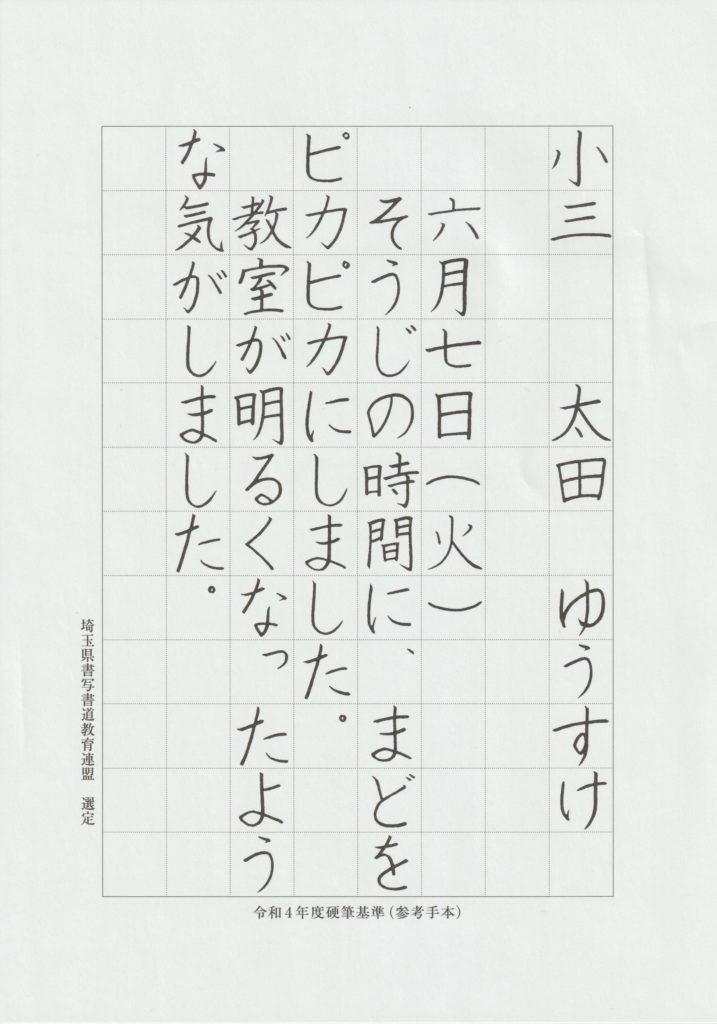 小三　太田　ゆうすけ
六月七日（火）
そうじの時間に、まどを
ピカピカにしました。
教室が明るくなったよう
な気がしました。
埼玉県書写書道教育連盟　選定
令和4年度硬筆基準（参考手本）